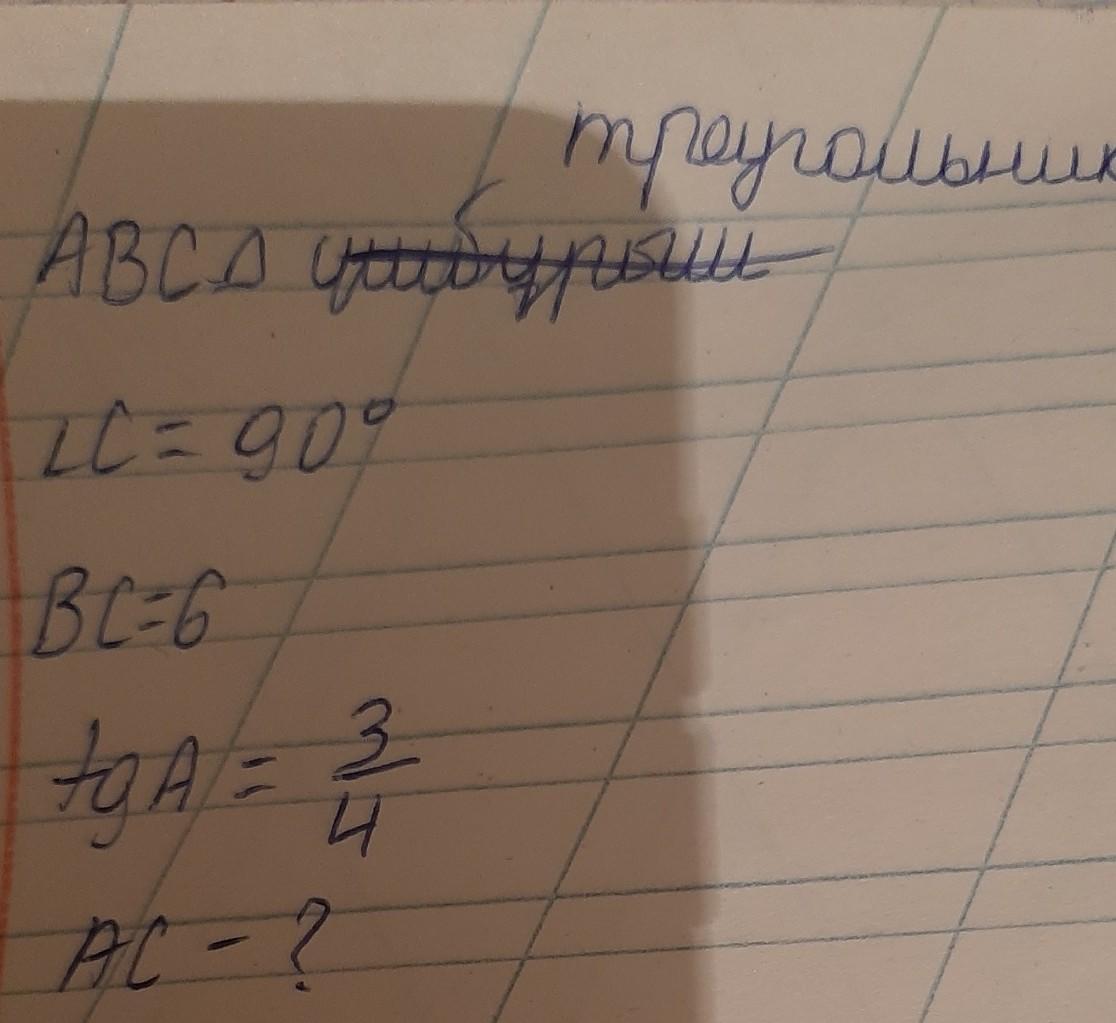 треугольник
ABCΔ
∠C = 90°
BC=6
tgA = 3/4
AC - ?